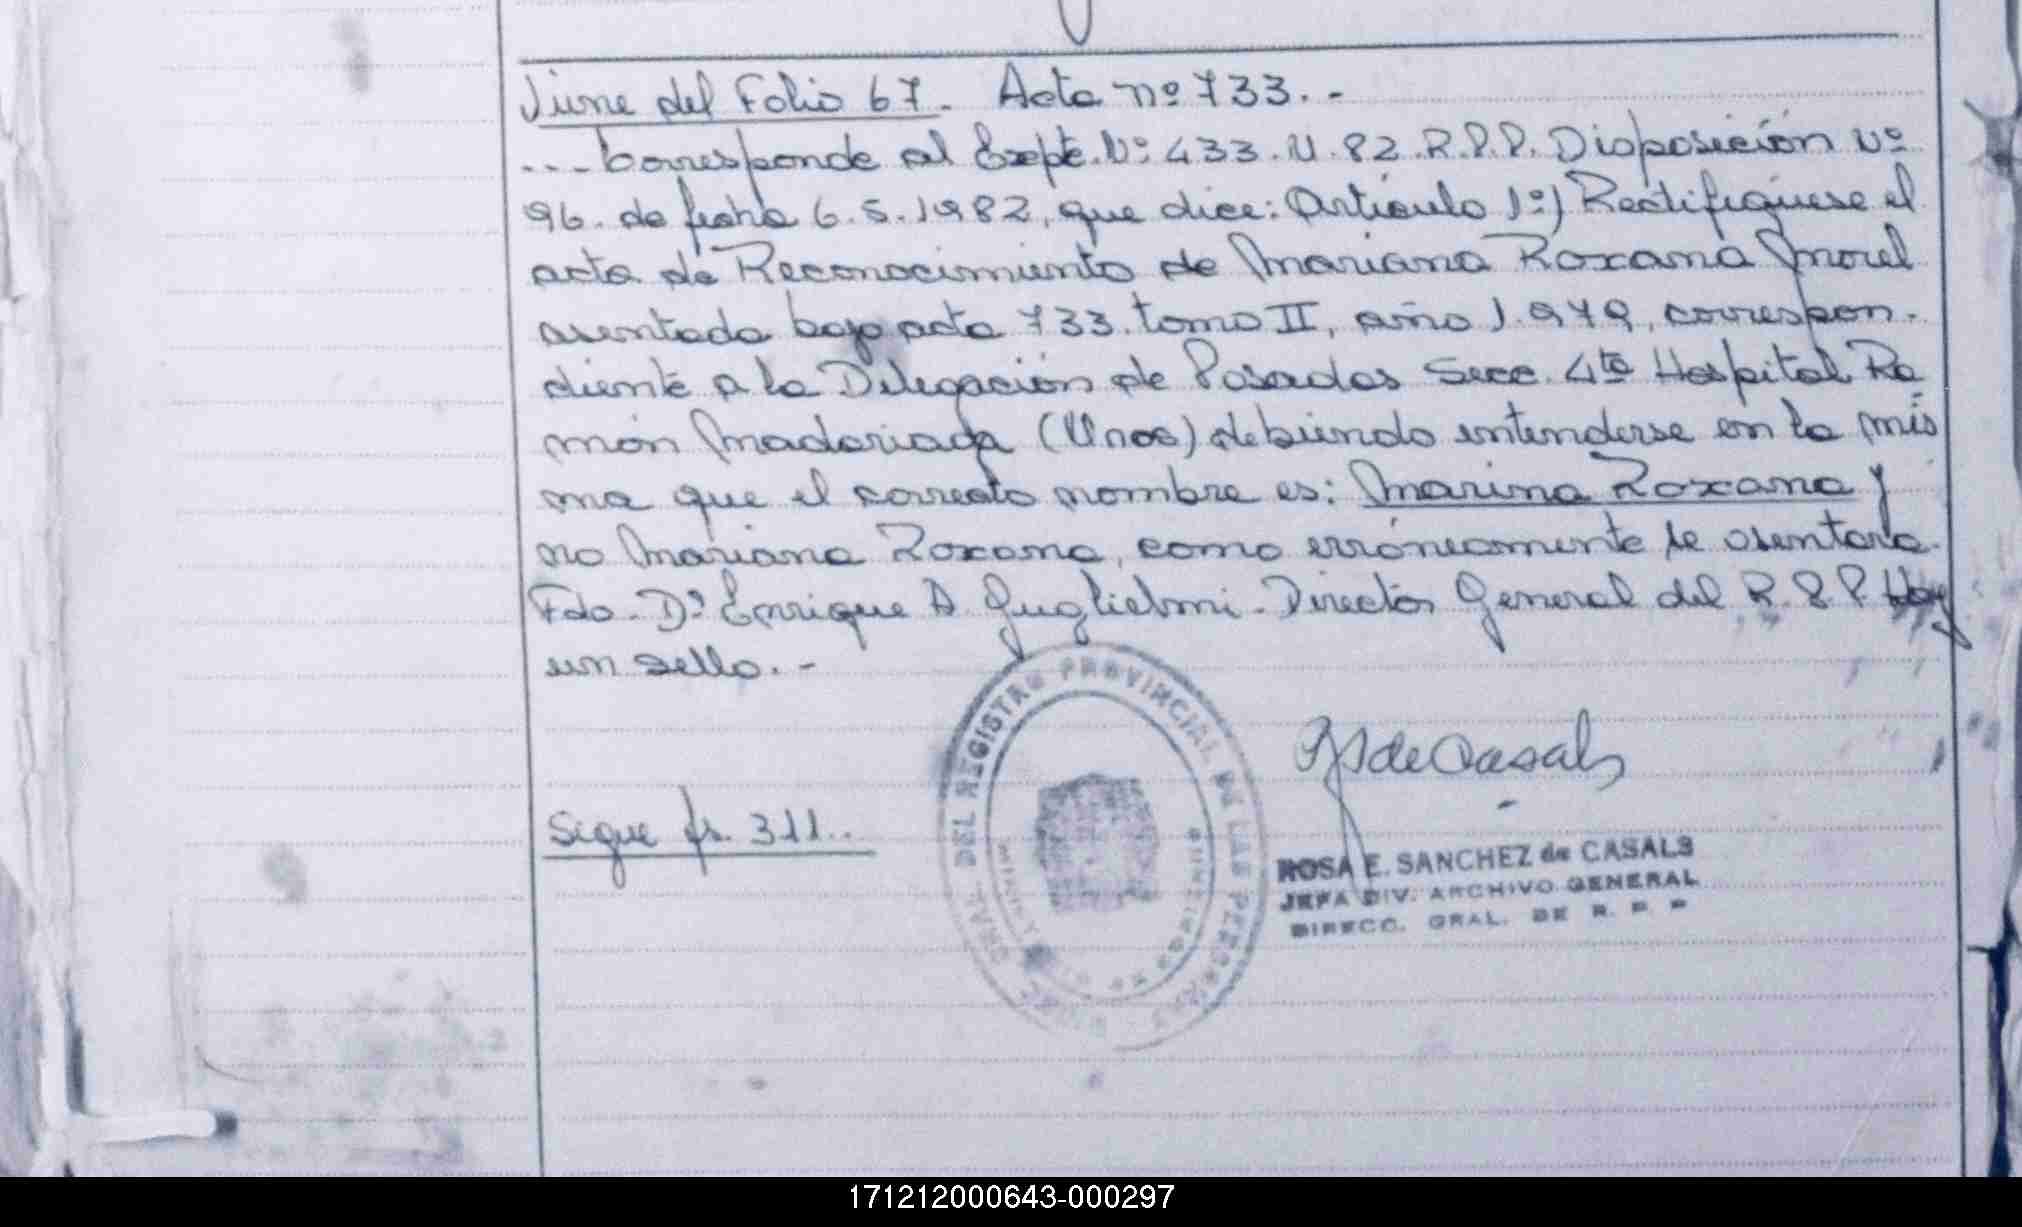 Viene del Folio 67. Acta nº 733.-
...Corresponde al Expte. Nº 433.U.82.R.P.P. Disposición Nº
96. de fecha 6.5.1982, que dice: Artículo 1º) Rectifíquese el
acta de Reconocimiento de Mariana Roxana Morel
asentada bajo acta 733. tomo II, año 1.979, correspon.
diente a la Delegación de Posadas Secc. 4ta Hospital Ra
món Madariaga (Mnes) debiendo entenderse en la mis
ma que el correcto nombre es: Marina Roxana y
no Mariana Roxana, como erróneamente se asentara.
Fdo. Dr Enrique A Guglielmi. Director General del R.P.P. Hay
un sello.-
Sigue fs. 311..
GRAL. DEL REGISTRO PROVINCIAL DE LAS PERSONAS
RS de Casals
ROSA E. SANCHEZ de CASALS
JEFA DIV. ARCHIVO GENERAL
DIRECC. GRAL. DE R. P. P
171212000643-000297